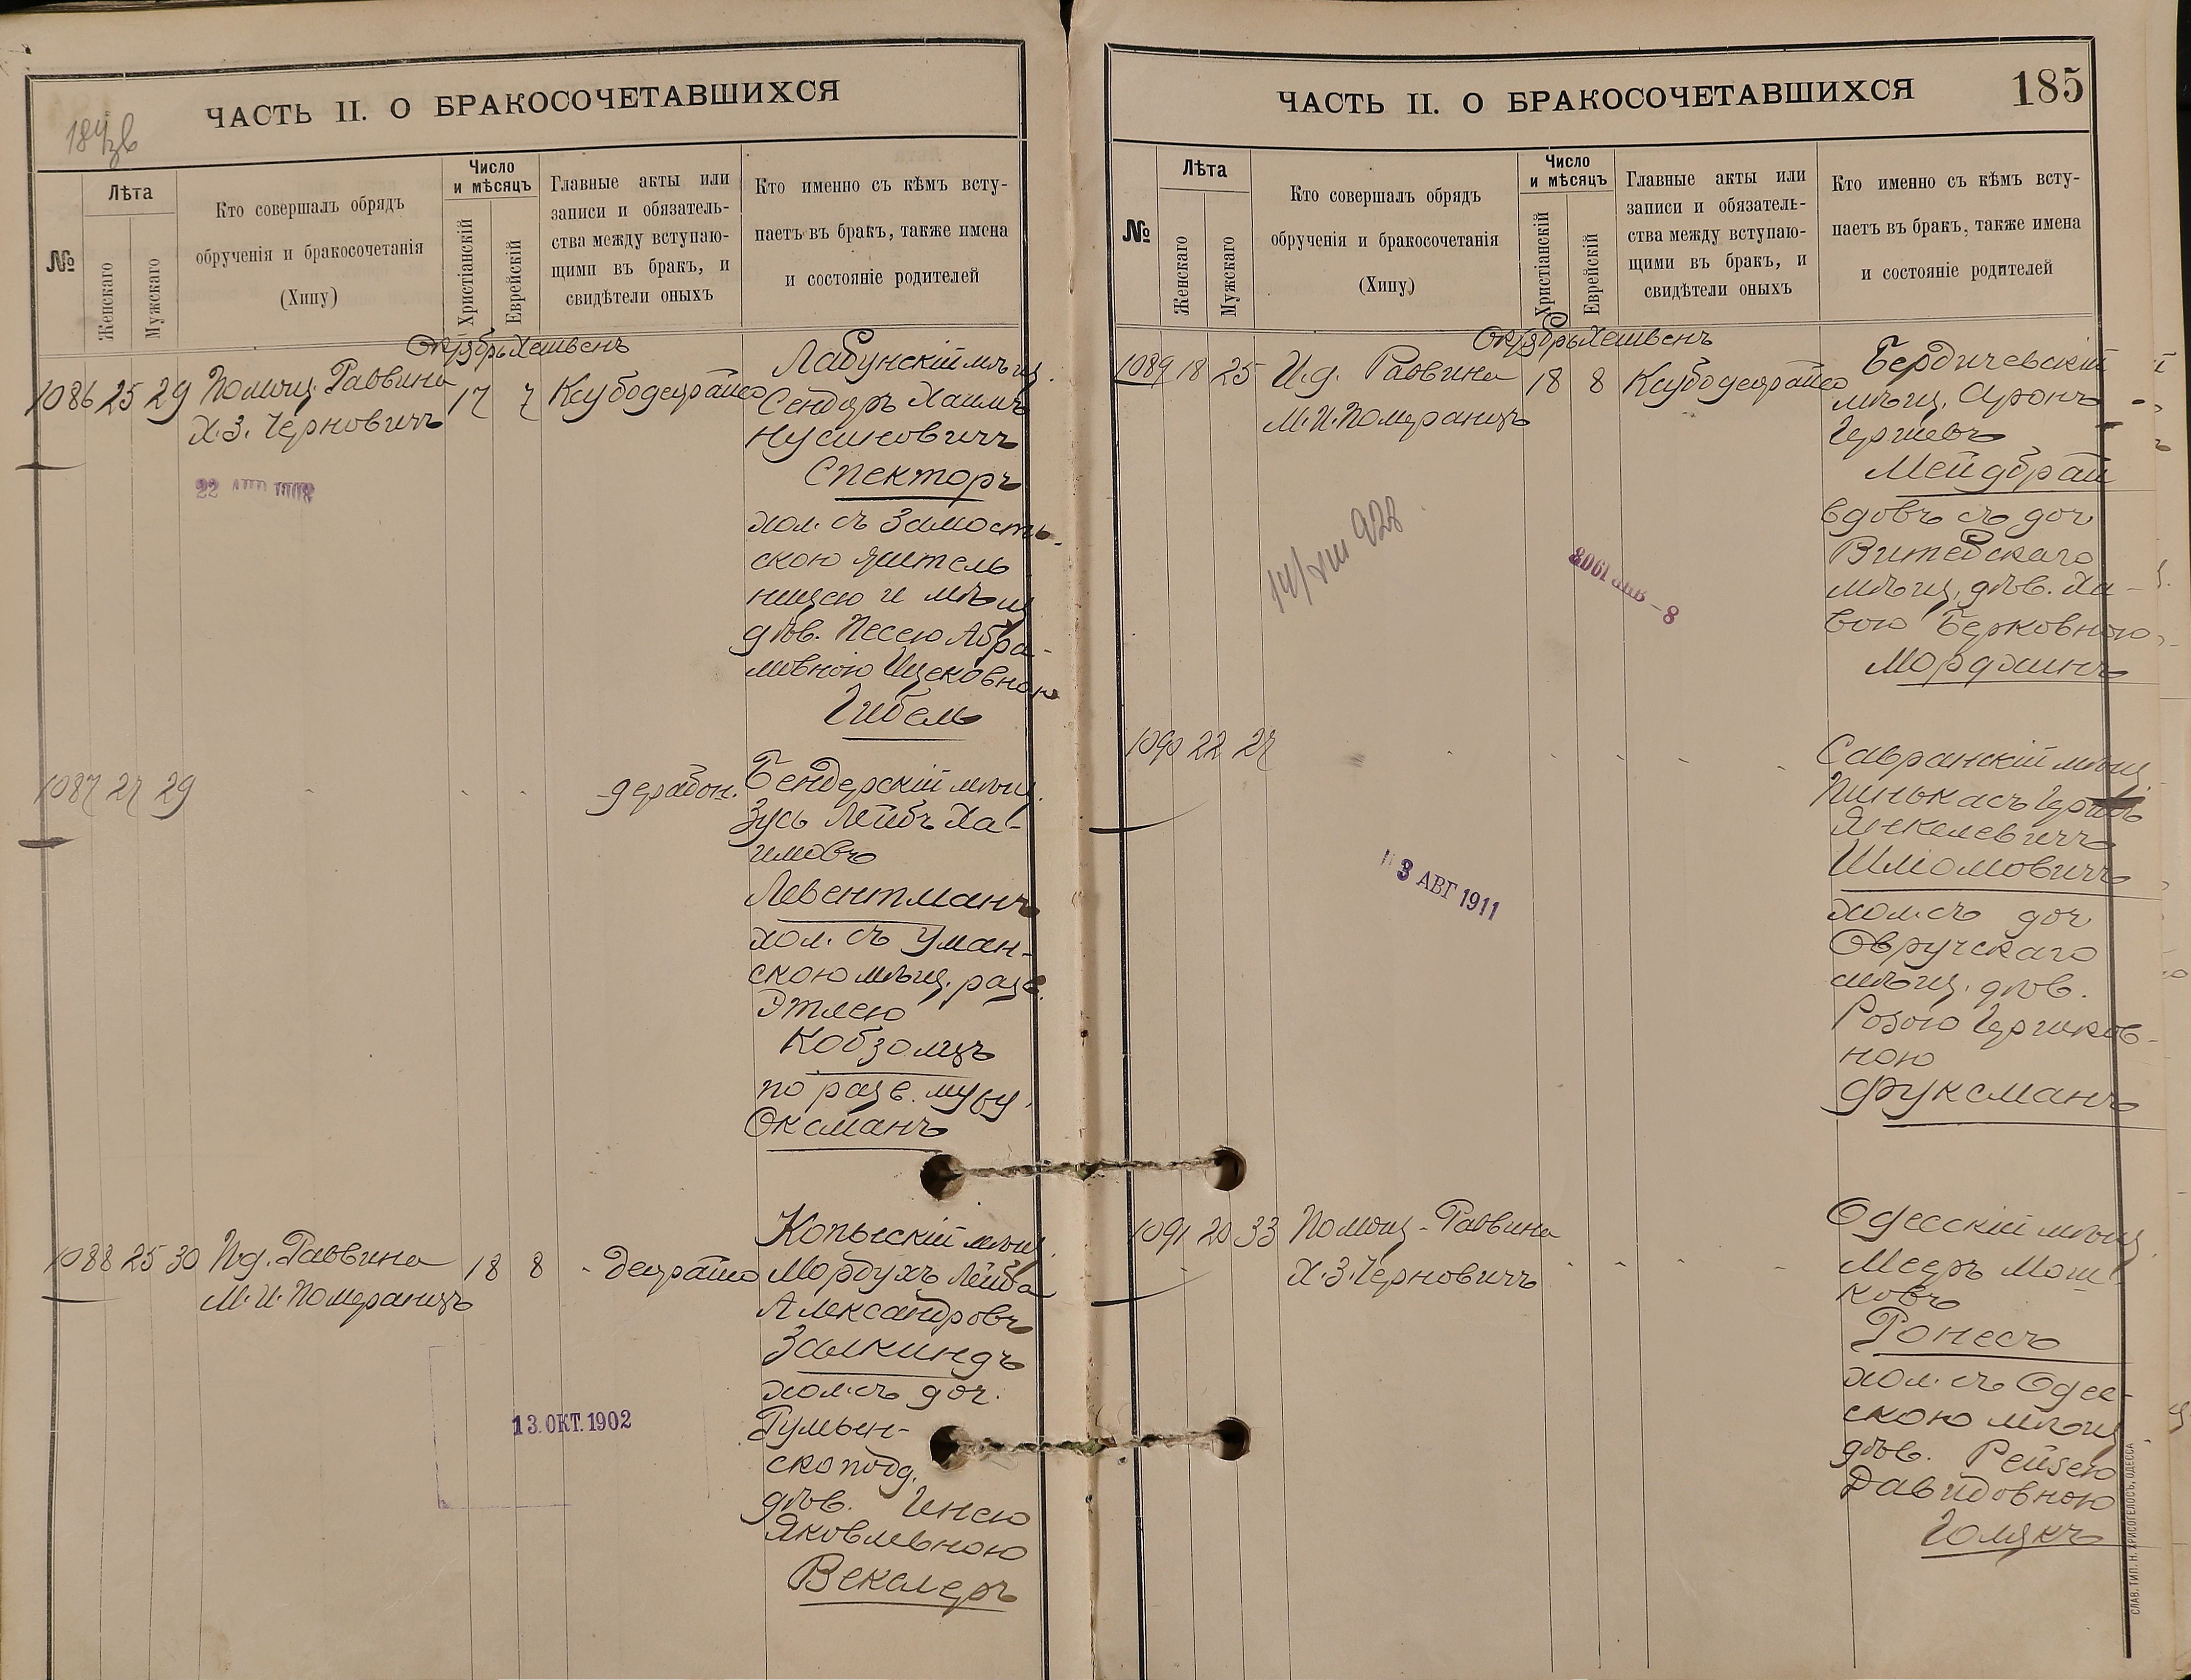 ЧАСТЬ II. О БРАКОСОЧЕТАВШИХСЯ
№
Лѣта
Женскаго
Мужскаго
Кто совершалъ обрядъ
обрученія и бракосочетанія
(Хипу)
Число
и мѣсяцъ
Христіанскій
Еврейскій
Главные акты или
записи и обязатель-
ства между вступаю-
щими въ бракъ, и
свидѣтели оныхъ
Кто именно съ кѣмъ всту-
паетъ въ бракъ, также имена
и состояніе родителей
Октябрь Хешвенъ
1086 25 29
Помощ. Раввина
Х.З. Черновичъ
17 7
22
Лабунскій мѣщ.
Сендеръ Хаимъ
Нусиновичъ
Спекторъ
хол. съ Замость-
скою жител
ницею и мѣщ
дѣв. Песею Абра-
мовною Ицковною
Гибель
1087 27 29
Бендерскій мѣщ.
Зусь Лейбъ Ха-
имовъ
Левентманъ
хол. съ Уман-
скою мѣщ. разв.
Этлею
Кобзолицъ
по разв. мужу
Оксманъ
1088 25 30
И.д. Раввина
М.И. Померанцъ
18 8
13. ОКТ. 1902
Копысскій мѣщ.
Мордухъ Лейба
Александровъ
Залкиндъ
хол. съ доч.
Румын-
скоподд.
дѣв. Инею
Яковлевною
Векслеръ
ЧАСТЬ II. О БРАКОСОЧЕТАВШИХСЯ
185
№
Лѣта
Женскаго
Мужскаго
Кто совершалъ обрядъ
обрученія и бракосочетанія
(Хипу)
Число
и мѣсяцъ
Христіанскій
Еврейскій
Главные акты или
записи и обязатель-
ства между вступаю-
щими въ бракъ, и
свидѣтели оныхъ
Кто именно съ кѣмъ всту-
паетъ въ бракъ, также имена
и состояніе родителей
Октябрь Хешвенъ
1089 18 25
И.д. Раввина
М.И. Померанцъ
18 8
14/VIII 928
8 - 1908
Бердичевскій
мѣщ. Аронъ
Гершевъ
Мейдбрай
вдовъ съ доч
Витебскаго
мѣщ. дѣв. Ха-
вою Берковною
Мордхинъ
1090 22 27
3 АВГ 1911
Савранскій мѣщ
Пинькасъ Гершъ
Янкелевичъ
Шліомовичъ
хол. съ доч
Овручскаго
мѣщ. дѣв.
Розою Гершков-
ною
Фуксманъ
1091 20 33
Помощ. Раввина
Х.З. Черновичъ
Одесскій мѣщ.
Мееръ Мош-
ковъ
Ронесъ
хол. съ Одес-
скою мѣщ
дѣв. Рейзею
Давидовною
Голякъ
СЛАВ. ТИП. Н. ХРИСОГЕЛОСЪ, ОДЕССА